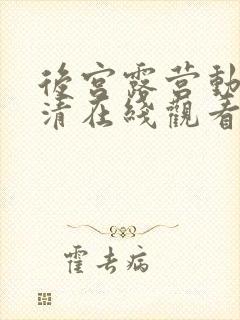 後宮露营動
清在綫觀看
霍去病